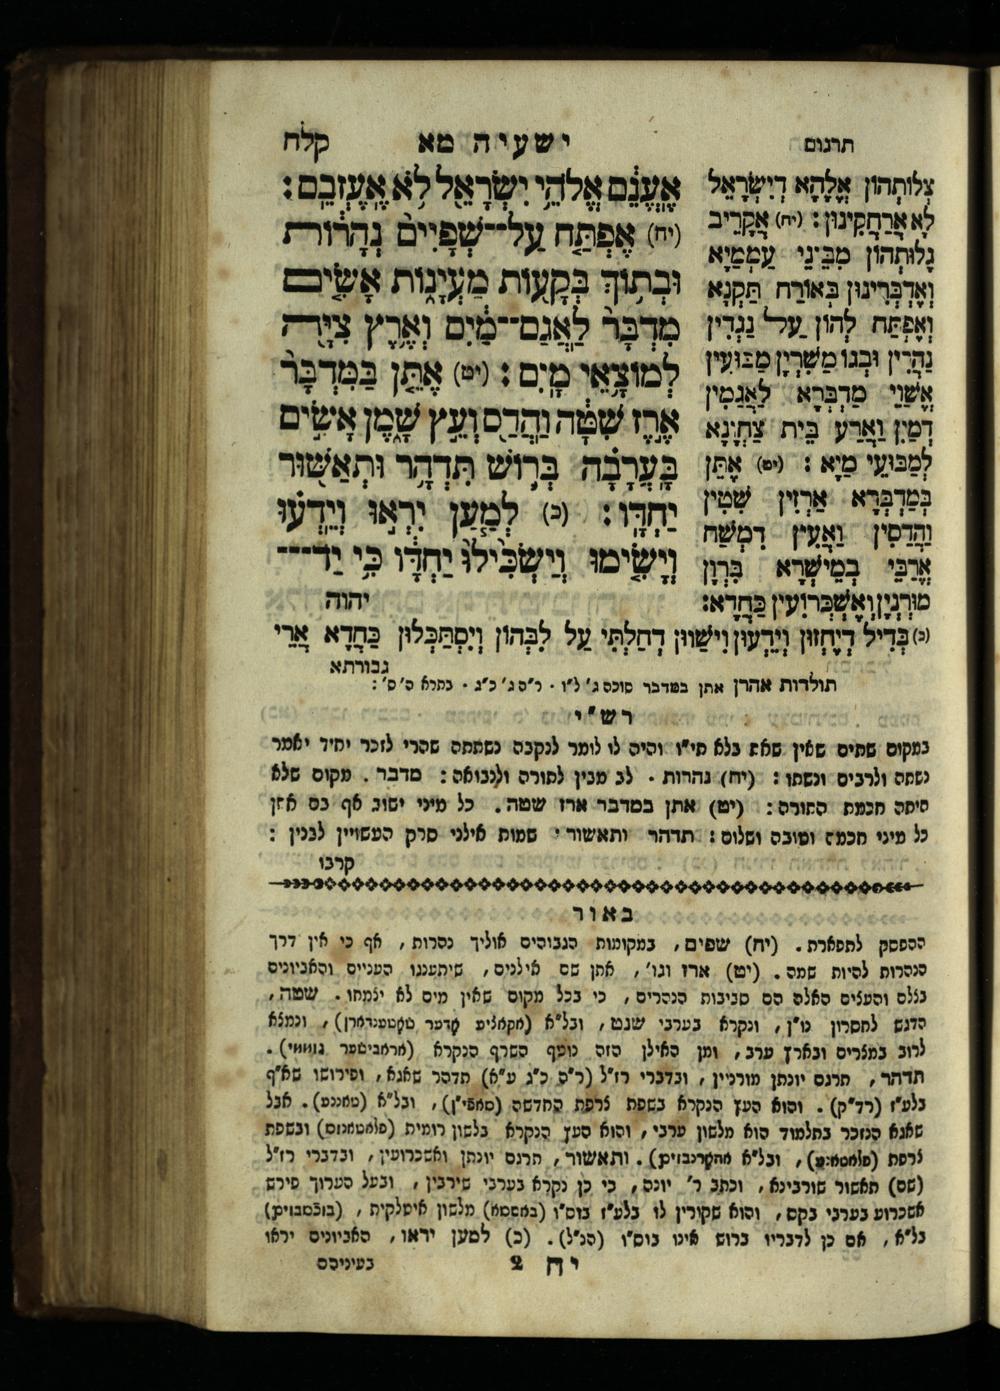 תרגום
ישעיה מא
קלח
אֶעֱנֵם אֱלֹהֵי יִשְׂרָאֵל לֹא אֶעֶזְבֵם :
(יח) אֶפְתַּח עַל־שְׁפָיִים נְהָרוֹת
וּבְתוֹךְ בְּקָעוֹת מַעְיָנוֹת אָשִׂים
מִדְבָּר לַאֲגַם־מַיִם וְאֶרֶץ צִיָּה
לְמוֹצָאֵי מָיִם : (יט) אֶתֵּן בַּמִּדְבָּר
אֶרֶז שִׁטָּה וַהֲדַס וְעֵץ שָׁמֶן אָשִׂים
בָּעֲרָבָה בְּרוֹשׁ תִּדְהָר וּתְאַשּׁוּר
יַחְדָּו : (כ) לְמַעַן יִרְאוּ וְיֵדְעוּ
וְיָשִׂימוּ וְיַשְׂכִּילוּ יַחְדָּו כִּי יַד־
יהוה
צְלוֹתְהוֹן אֱלָהָא דְיִשְׂרָאֵל
לָא אֲרַחֲקִינוּן : (יח) אֲקָרֵיב
גָלוּתְהוֹן מִבֵּינֵי עַמְמַיָא
וְאֶדְבְּרִינוּן בְּאוֹרַח תַּקְנָא
וְאֶפְתַּח לְהוֹן עַל נַגְדִין
נַהֲרִין וּבְגוֹ מֵשְׁרִין מַבּוּעִין
אֲשַׁוֵי מַדְבְּרָא לַאֲגַמִין
דְמַיִן וַאֲרַע בֵּית צַחְיָנָא
לְמַבּוּעֵי מַיָא : (יט) אֶתֵּן
בְּמַדְבְּרָא אַרְזִין שִׁטִין
וַהֲדַסִין וְאָעִין דִמְשַׁח
אֲרַבֵּי בְמֵישְׁרָא בִּרְוָן
מוּרְנְיָן וְאֶשְׁכְּרוֹעִין כַּחֲדָא:
(כ) בְּדִיל דְיֶחְזוּן וְיֵדְעוּן וִישַׁווּן דְחַלְתִּי עַל לִבְּהוֹן וְיִסְתַּכְּלוּן כַּחֲדָא אֲרֵי
גבורתא
תולדות אהרן אתן במדבר סוכה ג' ל"ו . ר"ה ג' כ"ג . בתרא ה' ס' :
רש"י
במקום שתים שאין שאת בלא תי"ו והיה לו לומר לנקבה נשתתה שהרי לזכר יחיד יאמר
נשתה ולרבים ונשתו : (יח) נהרות . לב מבין לתורה ולנבואה : מדבר . מקום שלא
היתה חכמת התורה : (יט) אתן במדבר ארז שטה . כל מיני ישוב אף בם אתן
כל מיני חכמה וטובה ושלום : תדהר ותאשור . שמות אילני סרק העשויין לבנין :
קרבו
באור
ההפסק לתפארת . (יח) שפים , במקומות הגבוהים אוליך נהרות , אף כי אין דרך
הנהרות להיות שמה . (יט) ארז וגו' , אתן שם אילנים , שיתענגו העניים והאביונים
בצלם והעצים האלה הם סביבות הנהרים , כי בכל מקום שאין מים לא יצמחו . שטה ,
הדגש לחסרון נו"ן , ונקרא בערבי שנט , ובל"א , ונמצא
לרוב במצרים ובארץ ערב , ומן האילן הזה נוטף השרף הנקרא .
תדהר , תרגם יונתן מורניין , ובדברי רז"ל (ר"ה כ"ג ע"א) תדהר שאגא , ופירושו שא"ף
בלע"ז (רד"ק) . והוא העץ הנקרא בשפת צרפת החדשה (סאפי"ן) , ובל"א (טאננע) . אבל
שאגא הנזכר בתלמוד הוא מלשון ערבי , והוא העץ הנקרא בלשון רומית (פלאטאנוס) ובשפת
צרפת , ובל"א . ותאשור , תרגם יונתן ואשכרועין , ובדברי רז"ל
(שם) תאשור שורבינא , וכתב ר' יונה , כי כן נקרא בערבי שירבין , ובעל הערוך פירש
אשכרוע בערבי בקס , והוא שקורין לו בלע"ז בוס"ו מלשון איטלקית ,
בל"א , אם כן לדבריו ברוש אינו בוס"ו (הנ"ל) . (כ) למען יראו , האביונים יראו
בעיניהם
יח 2